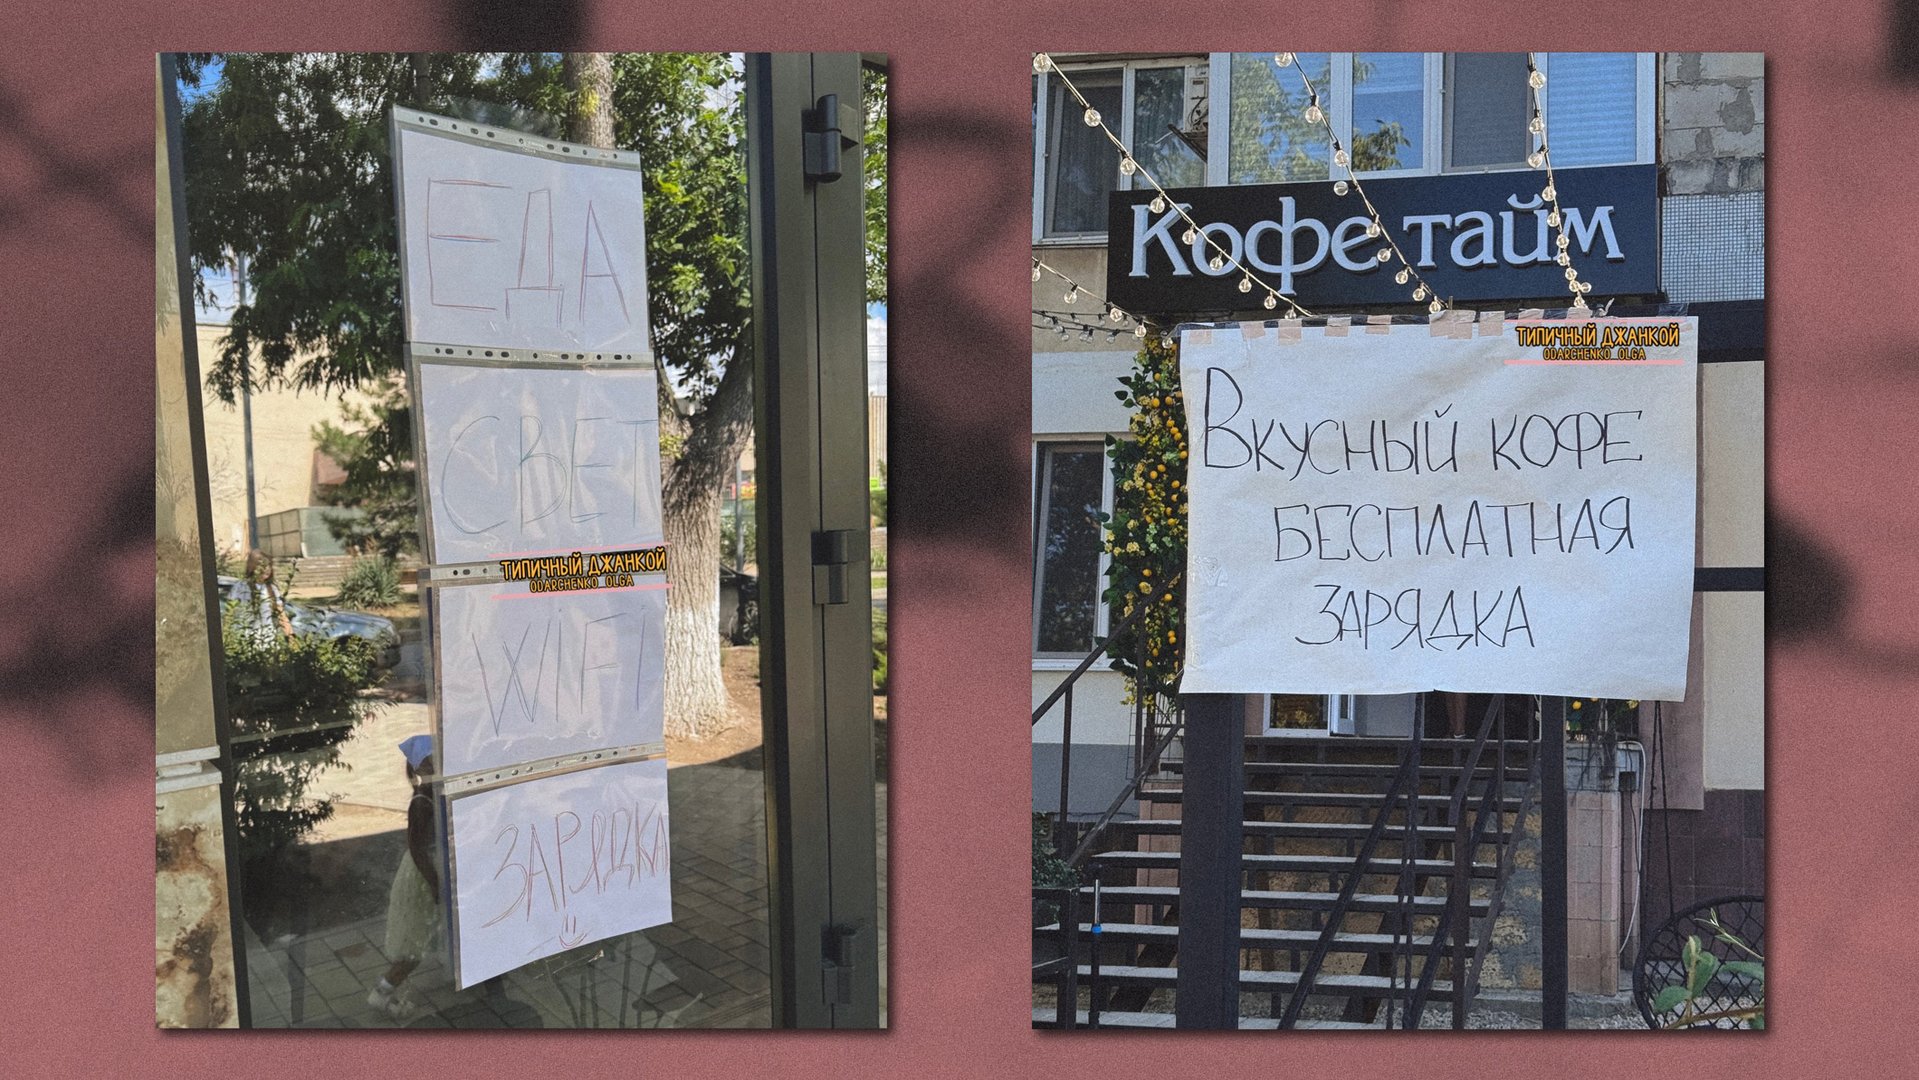 ЕДА
СВЕТ
ТИПИЧНЫЙ ДЖАНКОЙ
ODARCHENKO_OLGA
WIFI
ЗАРЯДКА
Кофе тайм
ТИПИЧНЫЙ ДЖАНКОЙ
ODARCHENKO_OLGA
Вкусный кофе
БЕСПЛАТНАЯ
ЗАРЯДКА